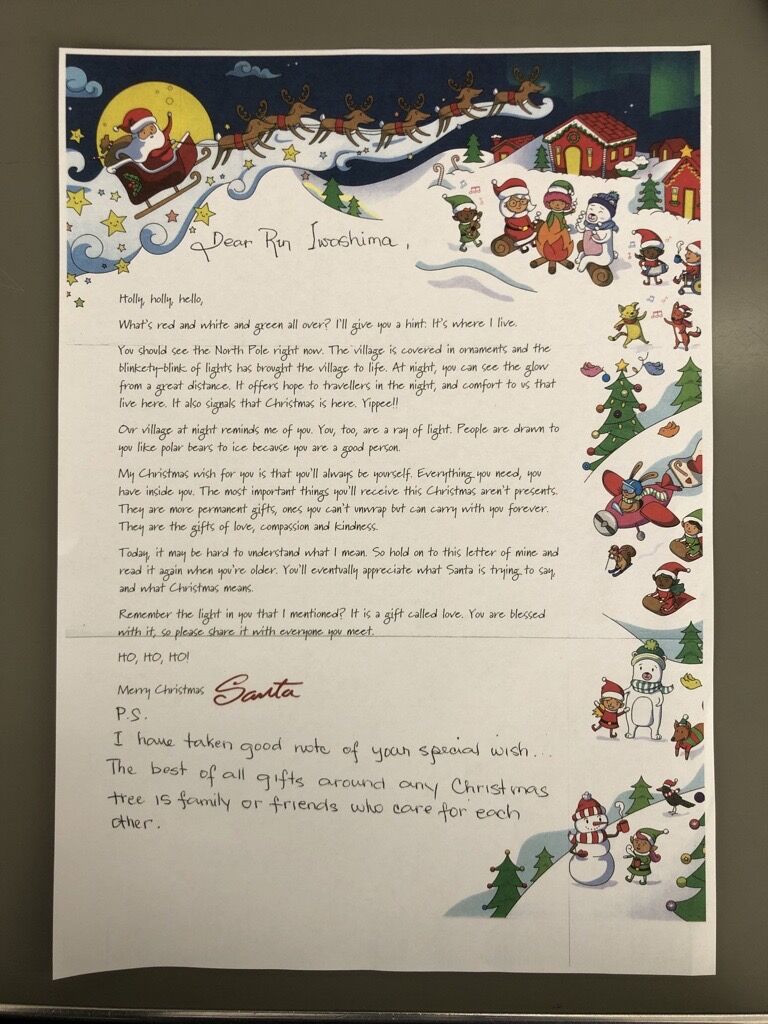 Dear Rin Iwashima,
Holly, holly, hello,
What's red and white and green all over? I'll give you a hint: It's where I live.
You should see the North Pole right now. The village is covered in ornaments and the
blinkety-blink of lights has brought the village to life. At night, you can see the glow
from a great distance. It offers hope to travellers in the night, and comfort to us that
live here. It also signals that Christmas is here. Yippee!!
Our village at night reminds me of you. You, too, are a ray of light. People are drawn to
you like polar bears to ice because you are a good person.
My Christmas wish for you is that you'll always be yourself. Everything you need, you
have inside you. The most important things you'll receive this Christmas aren't presents.
They are more permanent gifts, ones you can't unwrap but can carry with you forever.
They are the gifts of love, compassion and kindness.
Today, it may be hard to understand what I mean. So hold on to this letter of mine and
read it again when you're older. You'll eventually appreciate what Santa is trying to say,
and what Christmas means.
Remember the light in you that I mentioned? It is a gift called love. You are blessed
with it, so please share it with everyone you meet.
HO, HO, HO!
Merry Christmas Santa
P.S.
I have taken good note of your special wish...
The best of all gifts around any Christmas
tree is family or friends who care for each
other.